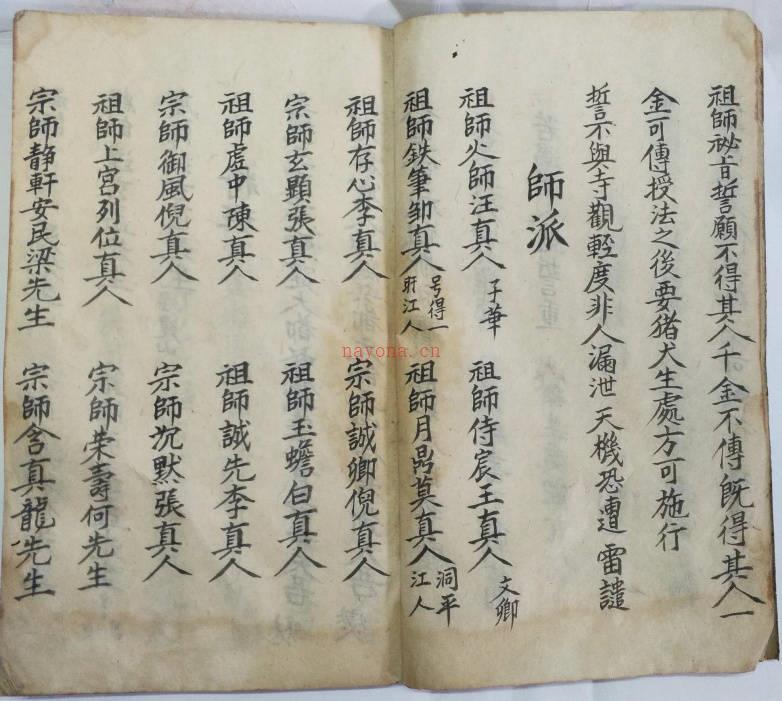 祖師祕旨誓願不得其人千金不傳既得其人一
金可傳授法之後要猪犬生處方可施行
誓不與寺觀輕度非人漏泄天機恐遭雷譴
師派
祖師火師汪真人子華 祖師侍宸王真人文卿
祖師鉄筆鄒真人号得一盱江人 祖師月鼎莫真人洞平江人
祖師存心李真人 宗師誠卿倪真人
宗師玄顯張真人 祖師玉蟾白真人
祖師虛中陳真人 祖師誠先李真人
宗師御風倪真人 宗師沉默張真人
祖師上宮列位真人 宗師荣壽何先生
宗師静軒安民梁先生 宗師含真龍先生
nayona.cn